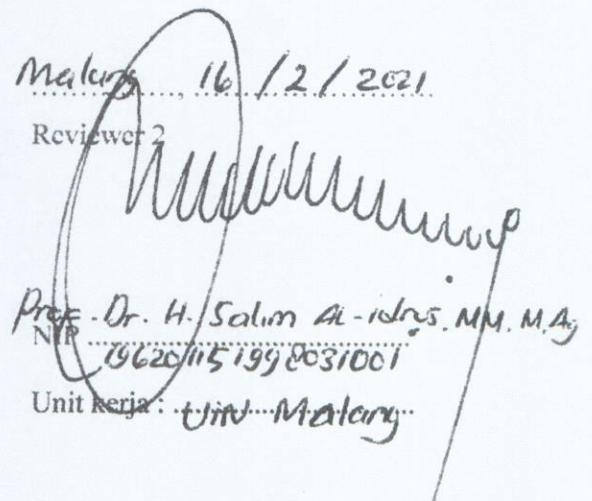 Malang, 16 / 2 / 2021
Reviewer 2
Prof. Dr. H. Salim Al-idrus. MM. M.Ag
NIP 196201151998031001
Unit kerja : UIN Malang